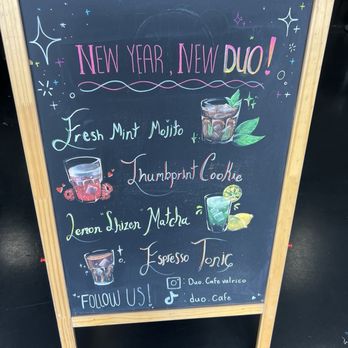 NEW YEAR, NEW DUO!
Fresh Mint Mojito
Thumbprint Cookie
Lemon Shizen Matcha
Espresso Tonic
FOLLOW US!
: Duo.Cafe valrico
: duo.Cafe